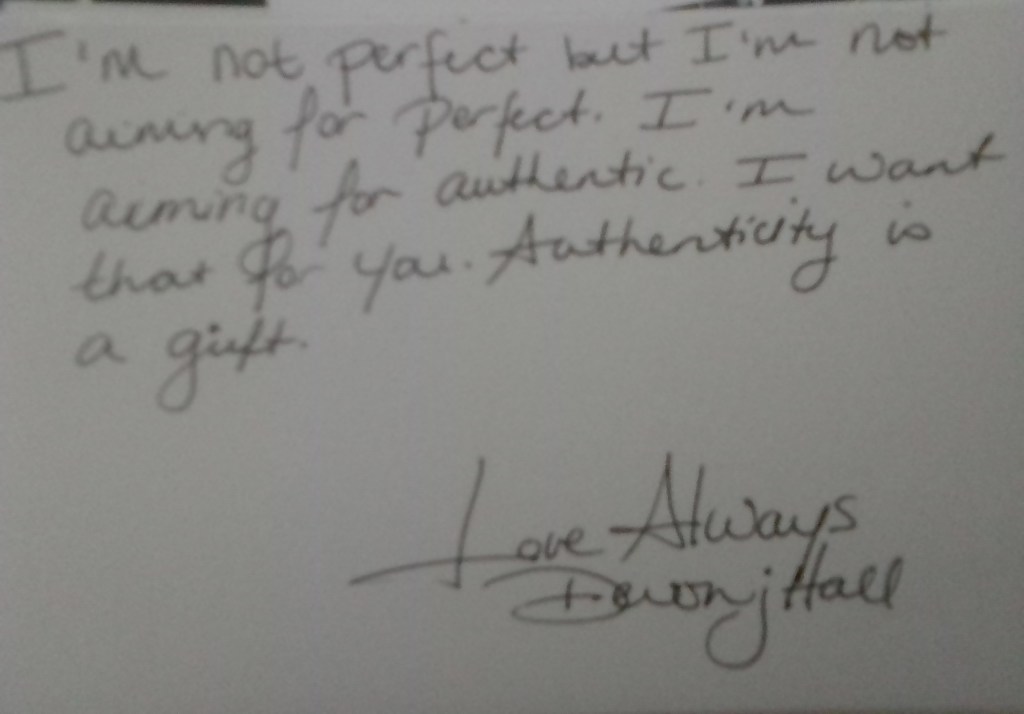 I'm not perfect but I'm not
aiming for perfect. I'm
aiming for authentic. I want
that for you. Authenticity is
a gift.
Love Always
Devon j Hall